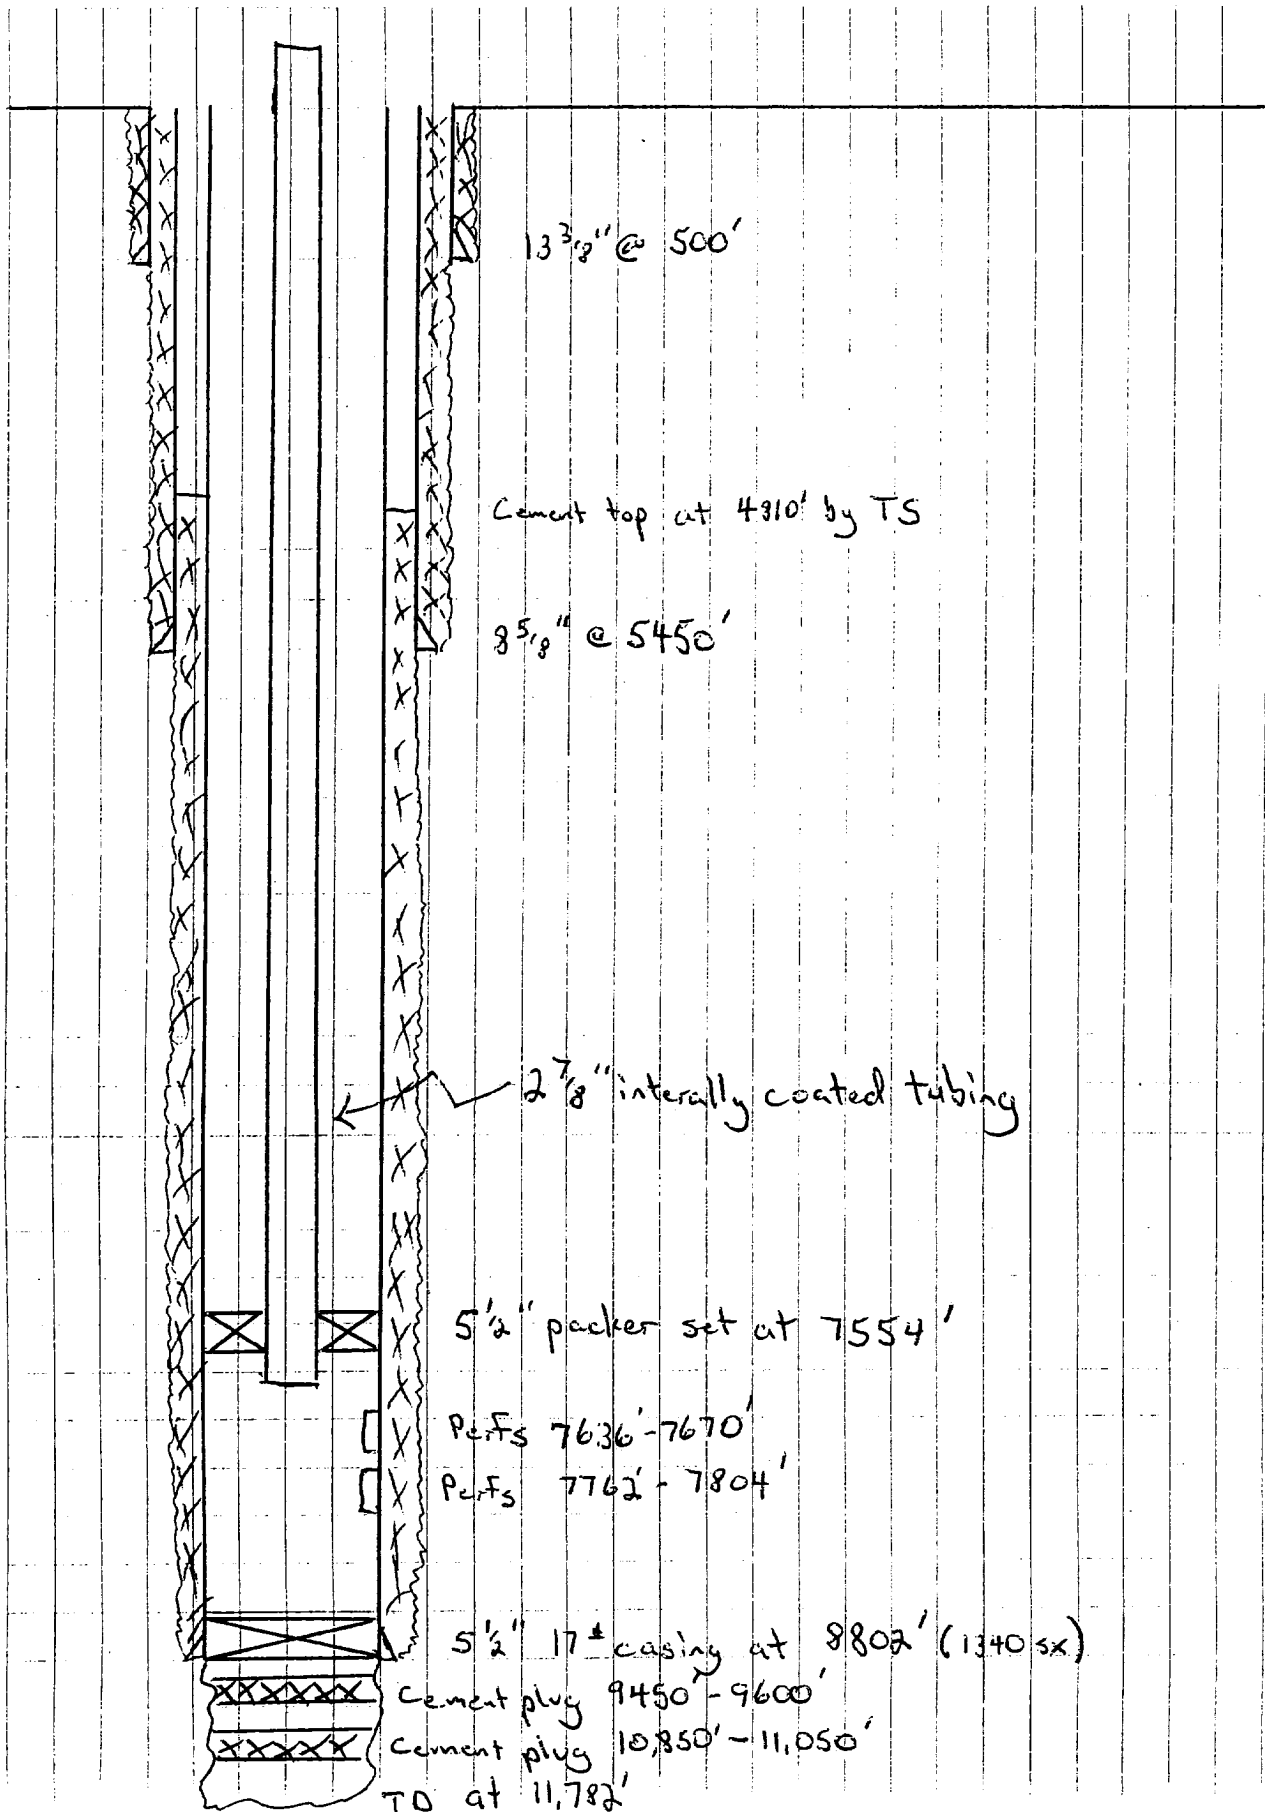 13 3/8" @ 500'
Cement top at 4310' by TS
8 5/8" @ 5450'
2 7/8" interally coated tubing
5 1/2" packer set at 7554'
Perfs 7636'-7670'
Perfs 7762' - 7804'
5 1/2" 17# casing at 8802' (1340 sx)
Cement plug 9450' - 9600'
Cement plug 10,850' - 11,050'
TD at 11,782'